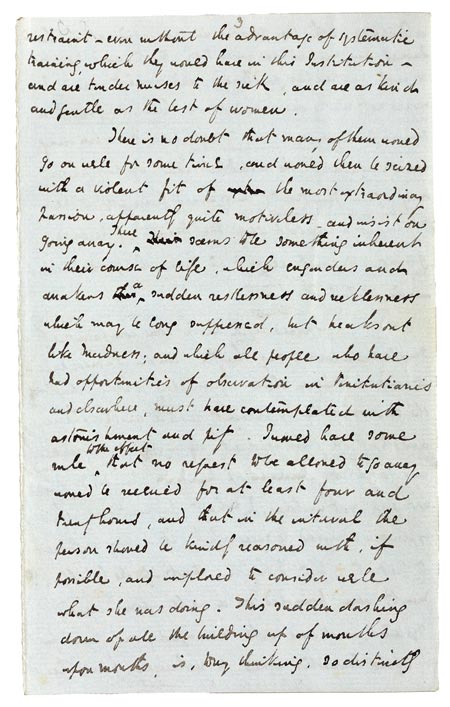 3
restraint – even without the advantage of systematic
training, which they would have in this Institution –
and are tender nurses to the sick, and are as kind
and gentle as the best of women.
There is no doubt that many of them would
go on well for some time, and would then be seized
with a violent fit of the most extraordinary
passion, apparently quite motiveless, and insist on
going away. There seems to be something inherent
in their course of life, which engenders and
awakens a sudden restlessness and recklessness
which may be long suppressed, but breaks out
like Madness; and which all people who have
had opportunities of observation in Penitentiaries
and elsewhere, must have contemplated with
astonishment and pity. I would have some
rule to the effect that no request to be allowed to go away
would be received for at least four and
twenty hours, and that in the interval the
person should be kindly reasoned with, if
possible, and implored to consider well
what she was doing. This sudden dashing
down of all the building up of months
upon months, is, to my thinking, so distinctly